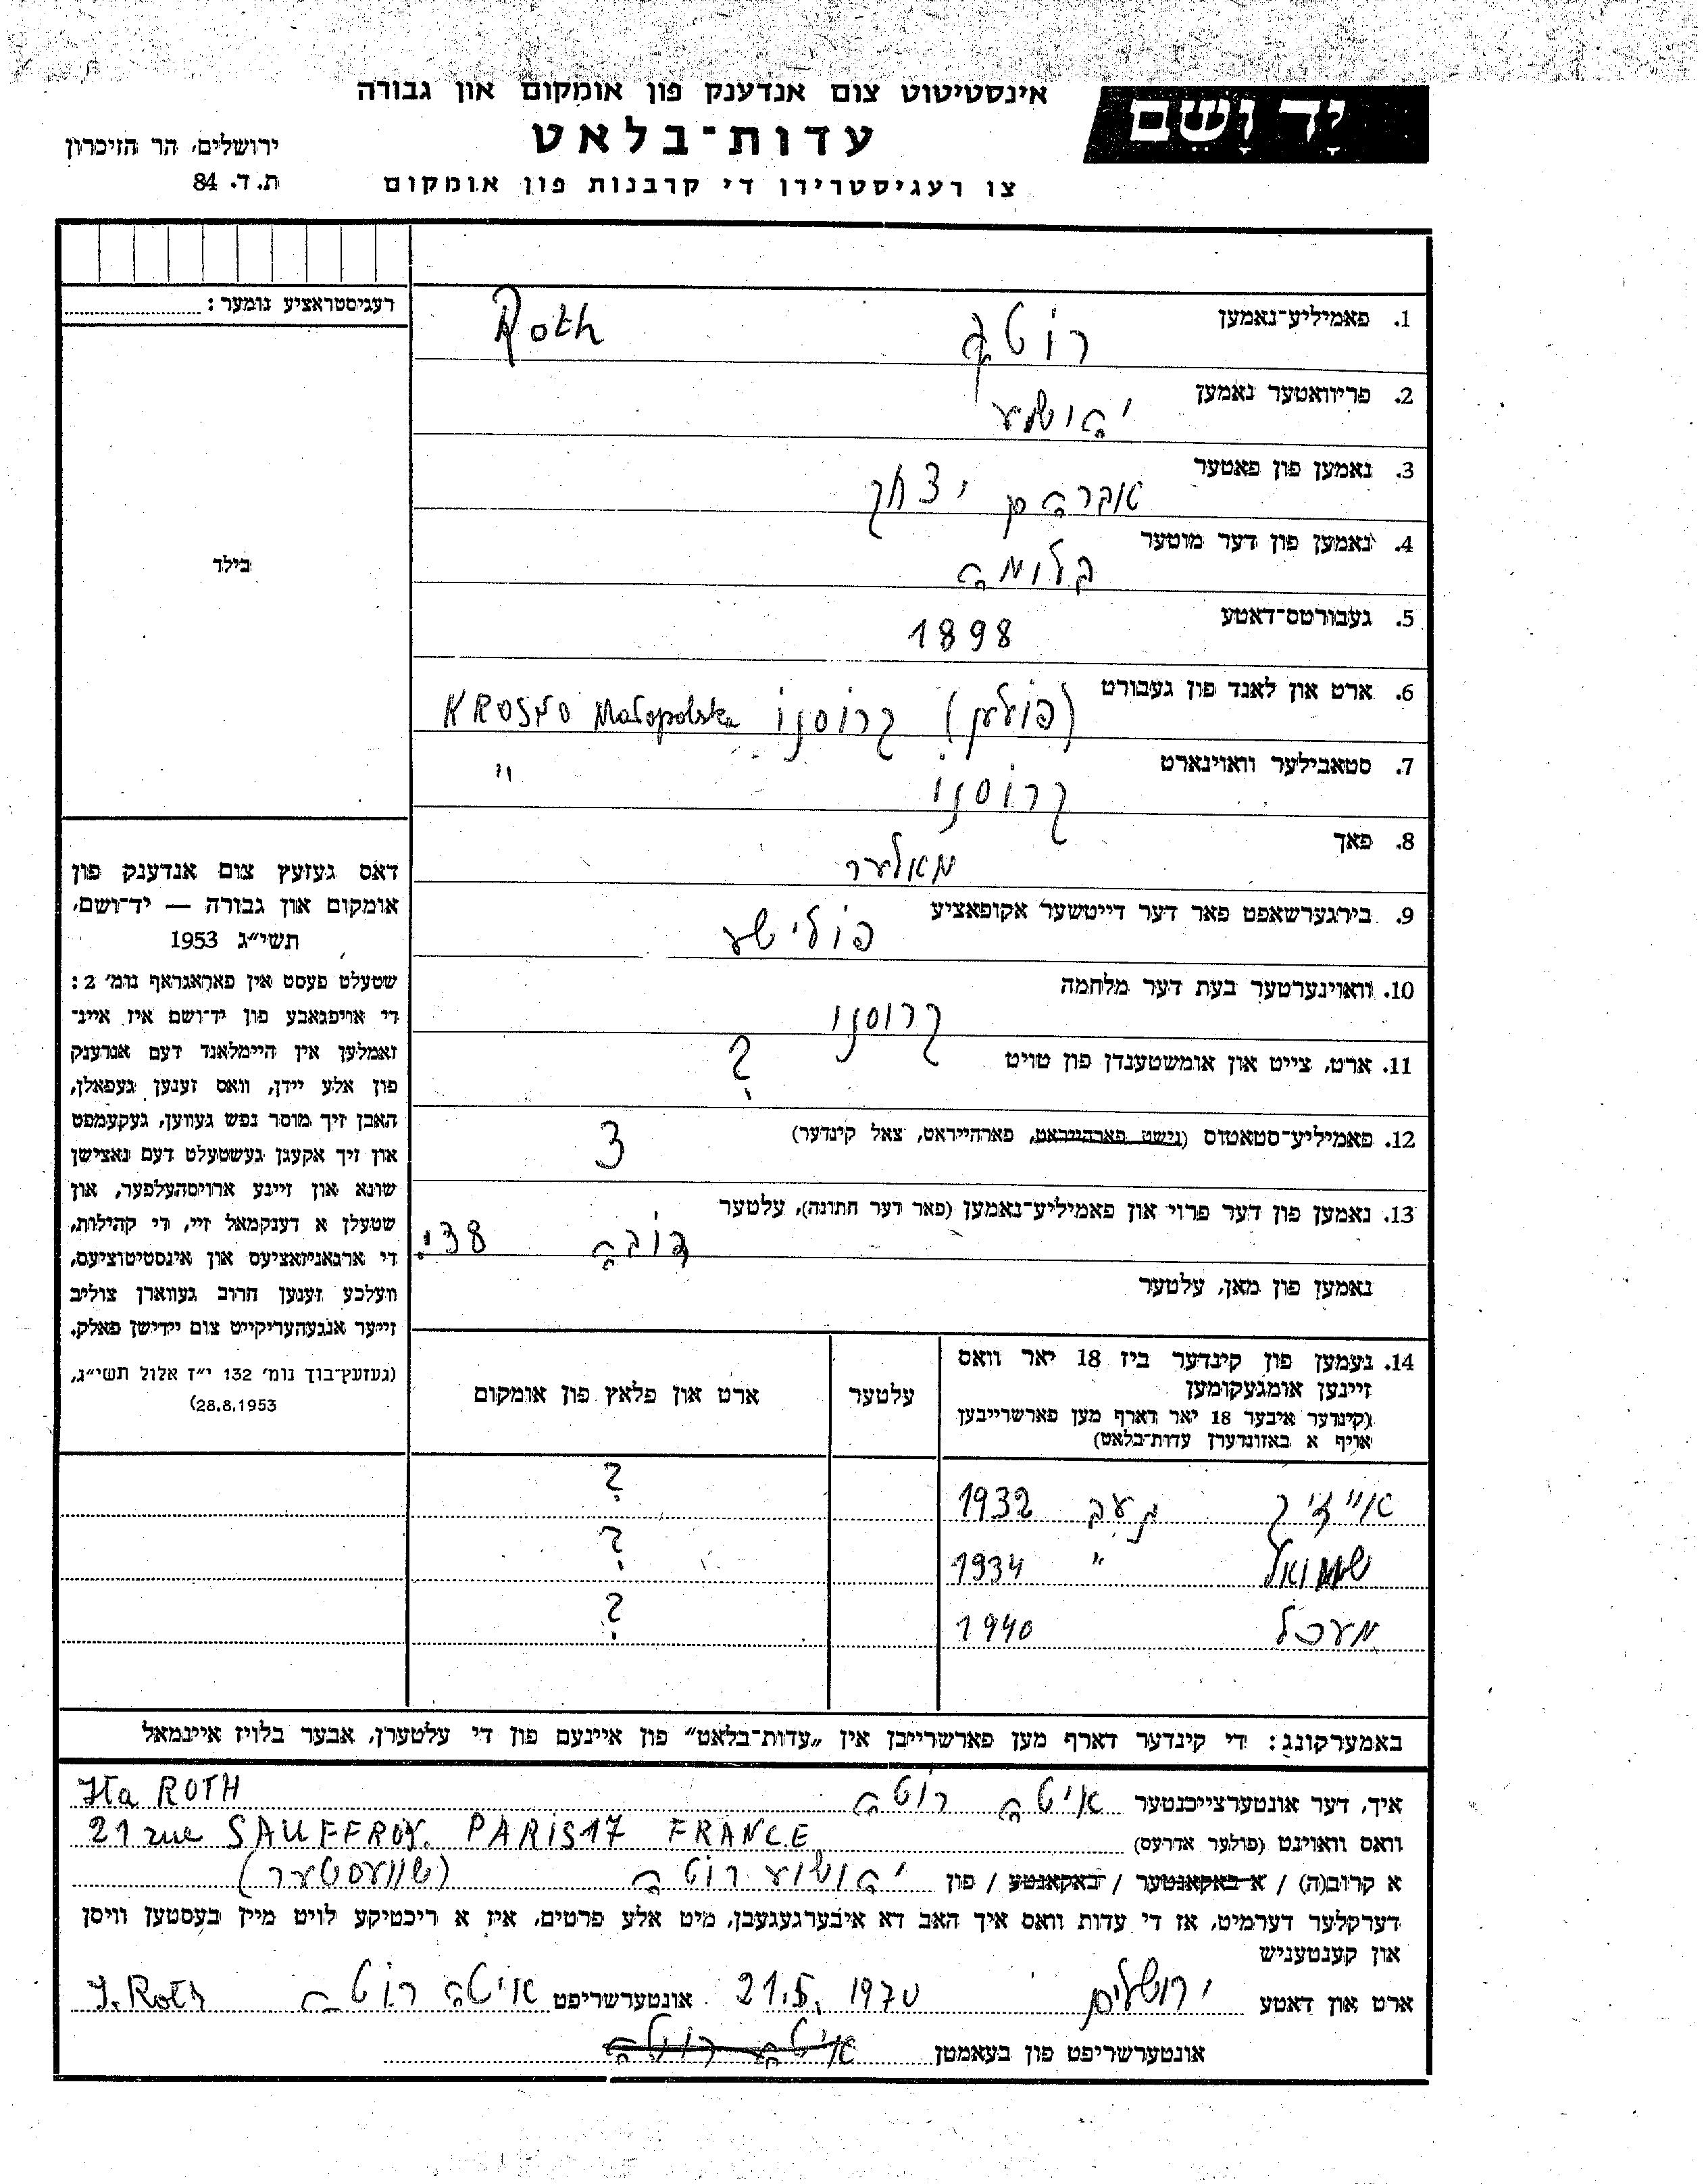 יָד וָשֵׁם
אינסטיטוט צום אנדענק פון אומקום און גבורה
עדות־בלאט
צו רעגיסטרירן די קרבנות פון אומקום
ירושלים, הר הזיכרון
ת. ד. 84
רעגיסטראציע נומער :
בילד
דאס געזעץ צום אנדענק פון
אומקום און גבורה — יד־ושם,
תשי״ג 1953
שטעלט פעסט אין פאראגראף נומ׳ 2 :
די אויפגאבע פון יד־ושם איז איינ־
זאמלען אין היימלאנד דעם אנדענק
פון אלע יידן, וואס זענען געפאלן,
האבן זיך מוסר נפש געווען, געקעמפט
און זיך אקעגן געשטעלט דעם נאצישן
שונא און זיינע ארויסהעלפער, און
שטעלן א דענקמאל זיי, די קהילות,
די ארגאניזאציעס און אינסטיטוציעס,
וועלכע זענען חרוב געווארן צוליב
זייער אנגעהעריקייט צום יידישן פאלק.
(געזעץ־בוך נומ׳ 132 י״ז אלול תשי״ג,
28.8.1953)
1. פאמיליע־נאמען רוטה Roth
2. פריוואטער נאמען יהושע
3. נאמען פון פאטער אברהם יצחק
4. נאמען פון דער מוטער בלומה
5. געבורטס־דאטע 1898
6. ארט און לאנד פון געבורט (פולען) קרוסנו KROSNO Małopolska
7. סטאבילער וואוינארט קרוסנו "
8. פאך מאלער
9. בירגערשאפט פאר דער דייטשער אקופאציע פולישע
10. וואוינערטער בעת דער מלחמה קרוסנו
11. ארט, צייט און אומשטענדן פון טויט ?
12. פאמיליע־סטאטוס (נישט פארהייראט, פארהייראט, צאל קינדער) 3
13. נאמען פון דער פרוי און פאמיליע־נאמען (פאר דער חתונה), עלטער 38
נאמען פון מאן, עלטער
14. נעמען פון קינדער ביז 18 יאר וואס
זיינען אומגעקומען
(קינדער איבער 18 יאר דארף מען פארשרייבן
אויף א באזונדערן עדות־בלאט)
עלטער
ארט און פלאץ פון אומקום
אייזיק 1932 ?
שמואל " 1934 ?
מערכל 1940 ?
באמערקונג : די קינדער דארף מען פארשרייבן אין „עדות־בלאט״ פון איינעם פון די עלטערן, אבער בלויז איינמאל
איך, דער אונטערצייכנטער איטה רוטה Ita ROTH
וואס וואוינט (פולער אדרעס) 21 rue SAUFFROY. PARIS 17 FRANCE
א קרוב(ה) / א באקאנטער / באקאנטע / פון יהושע רוטה (שוועסטער)
דערקלער דערמיט, אז די עדות וואס איך האב דא איבערגעגעבן, מיט אלע פרטים, איז א ריכטיקע לויט מיין בעסטען וויסן
און קענטעניש
ארט און דאטע ירושלים 21.5.1970 אונטערשריפט איטה רוטה I. Roth
אונטערשריפט פון בעאמטן איטה רוטה